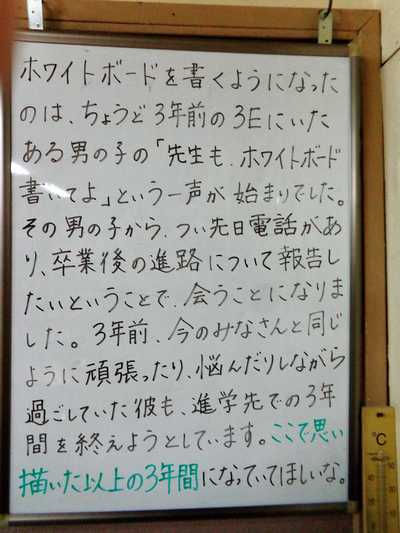 ホワイトボードを書くようになった
のは、ちょうど3年前の3Eにいた
ある男の子の「先生も、ホワイトボード
書いてよ」という一声が始まりでした。
その男の子から、つい先日電話があ
り、卒業後の進路について報告し
たいということで、会うことになりま
した。3年前、今のみなさんと同じ
ように頑張ったり、悩んだりしながら
過ごしていた彼も、進学先での3年
間を終えようとしています。ここで思い
描いた以上の3年間になっていてほしいな。
°C